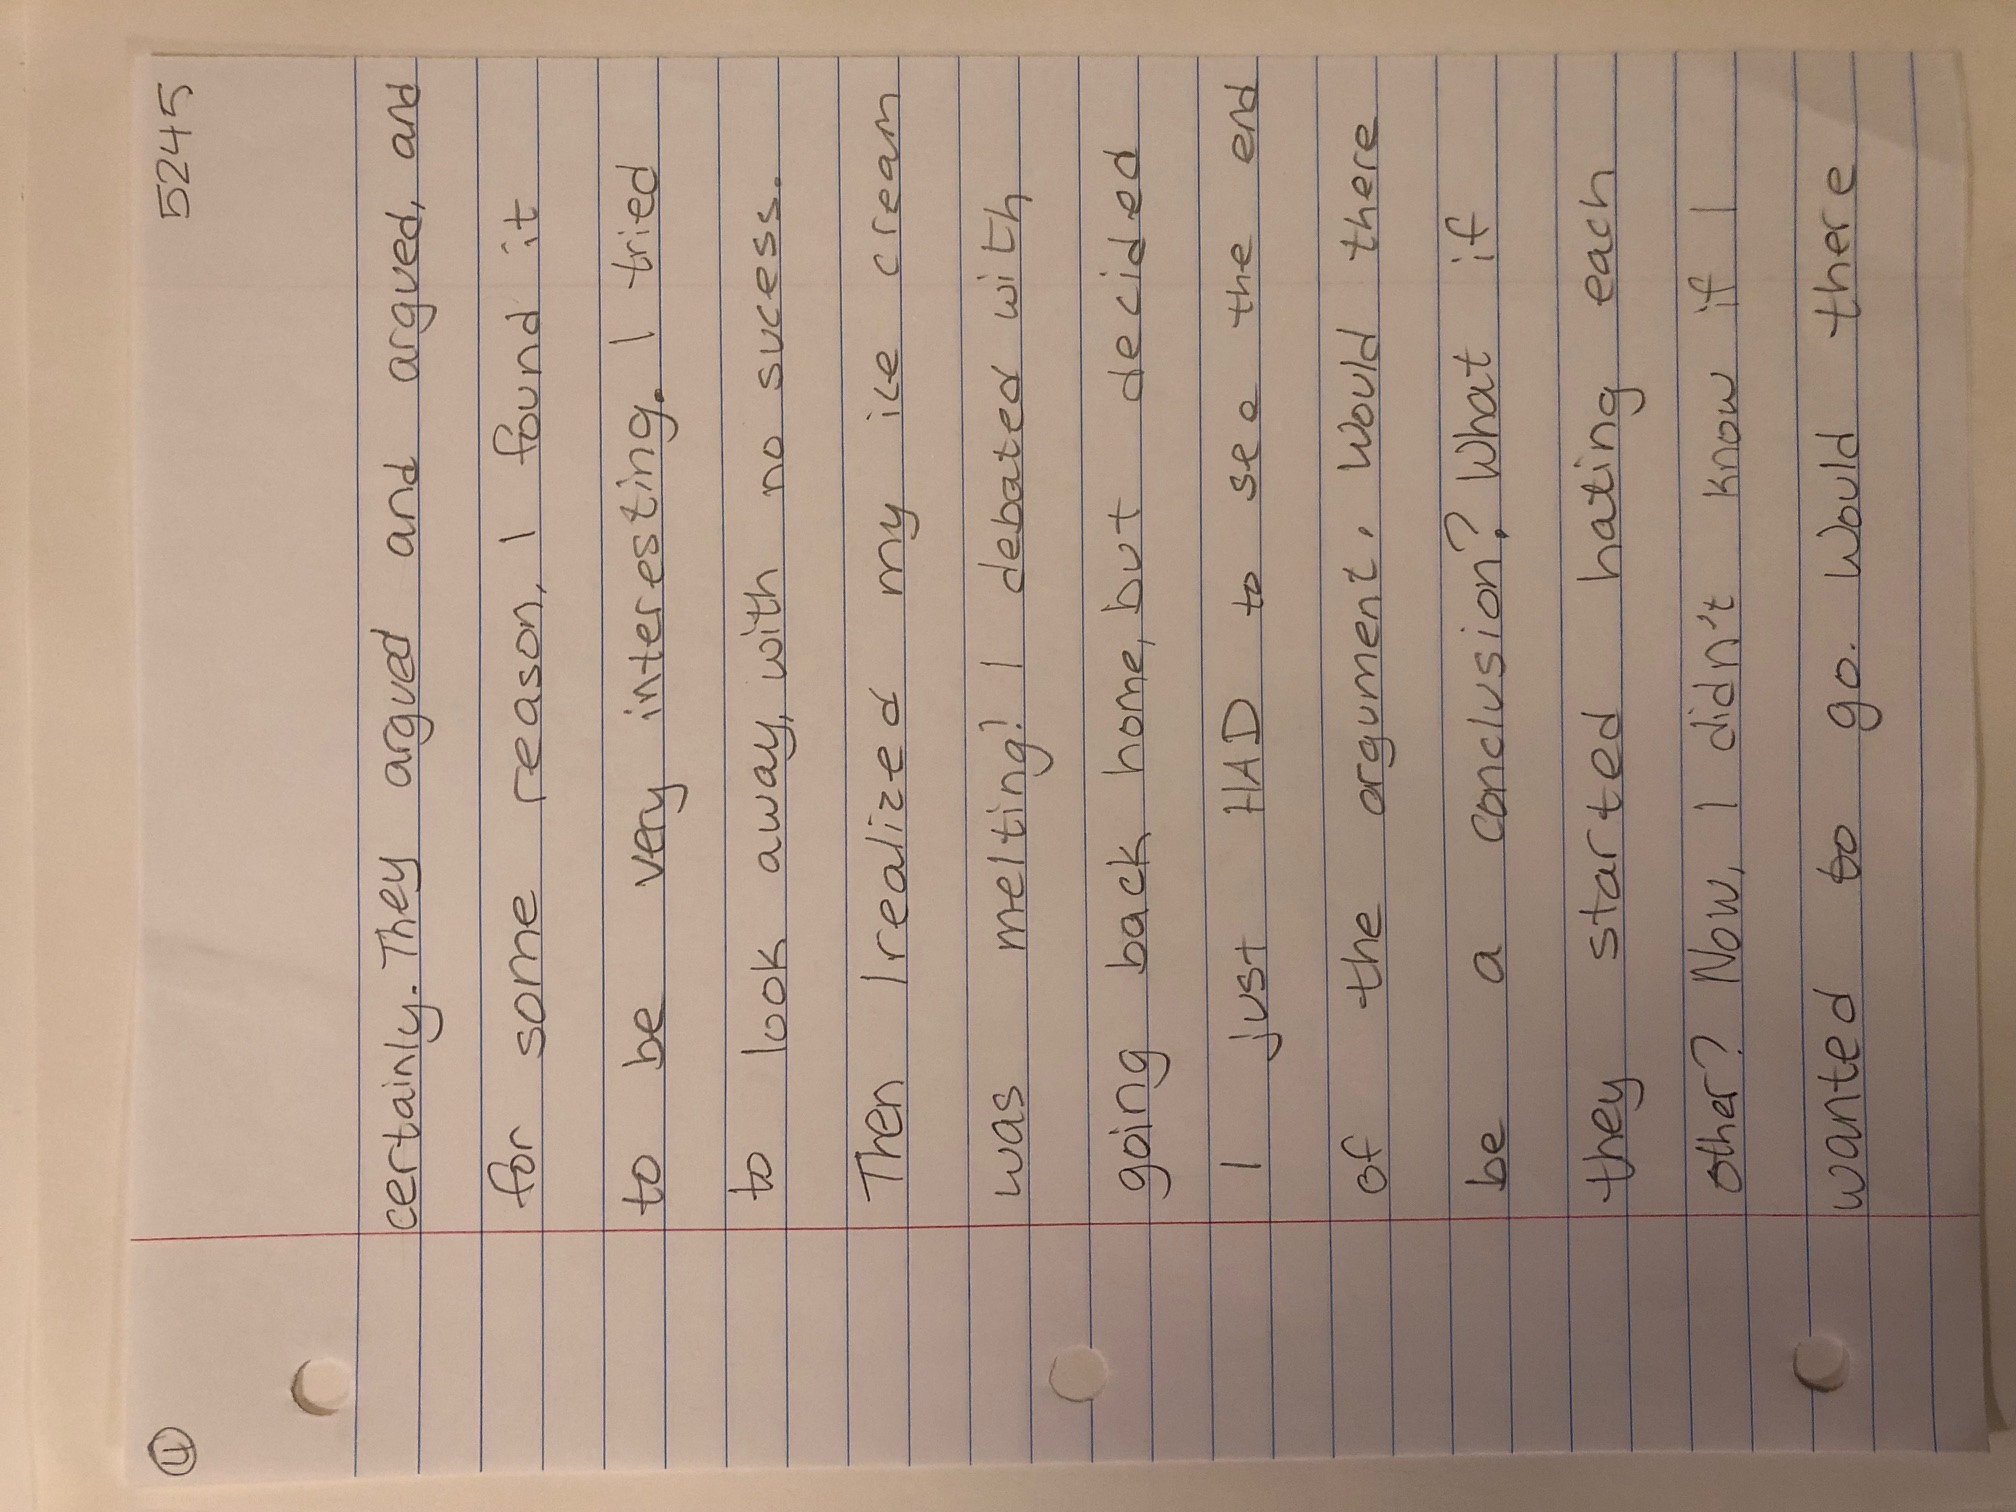 ④ 5245
certainly. They argued and argued, and
for some reason, I found it
to be very interesting. I tried
to look away, with no sucess.
Then I realized my ice cream
was melting! I debated with
going back home, but decided
I just HAD to see the end
of the argument. Would there
be a conclusion? What if
they started hating each
other? Now, I didn't know if I
wanted to go. Would there